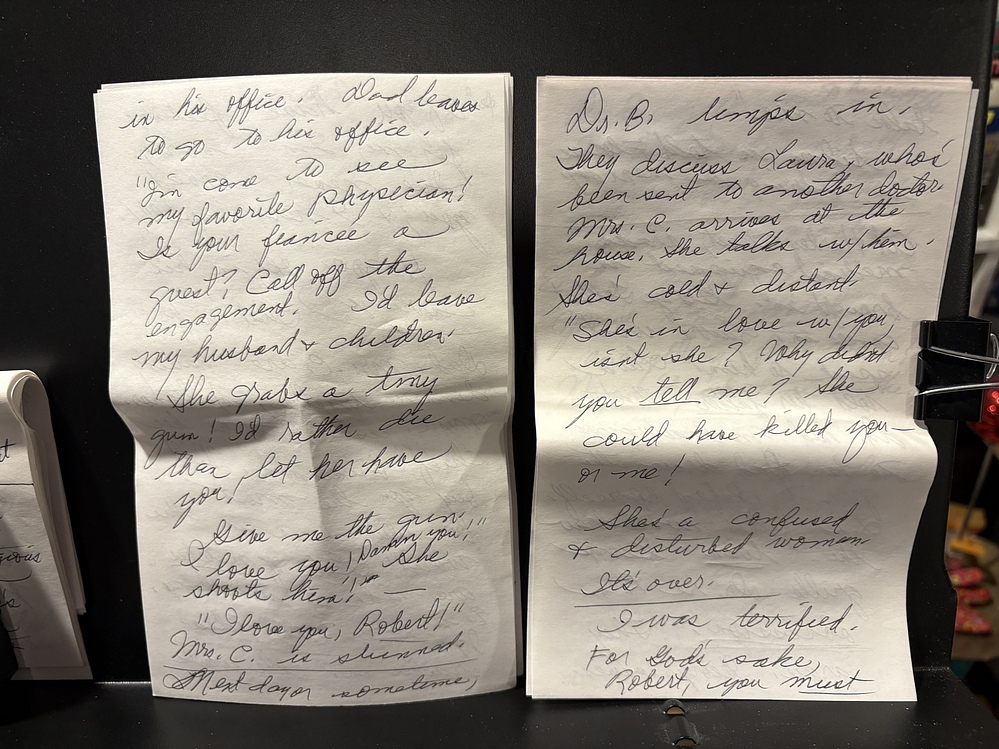 in his office. Dad leaves
to go to his office.
"I'm come to see
my favorite physician!
Is your fiancée a
guest? Call off the
engagement. I'd leave
my husband & children.
She grabs a tiny
gun! I'd rather die
than let her have
you!
Give me the gun.
I love you! Damn you!" She
shoots him! —
"I love you, Robert!"
Mrs. C. is stunned.
Next day or sometime,
Dr. B. limps in.
They discuss Laura, who's
been sent to another doctor.
Mrs. C. arrives at the
house. She talks w/him.
She's cold & distant.
"She's in love w/you,
isn't she? Why didn't
you tell me? She
could have killed you—
or me!
She's a confused
& disturbed woman.
It's over.
I was terrified.
For God's sake,
Robert, you must
t
gious
's